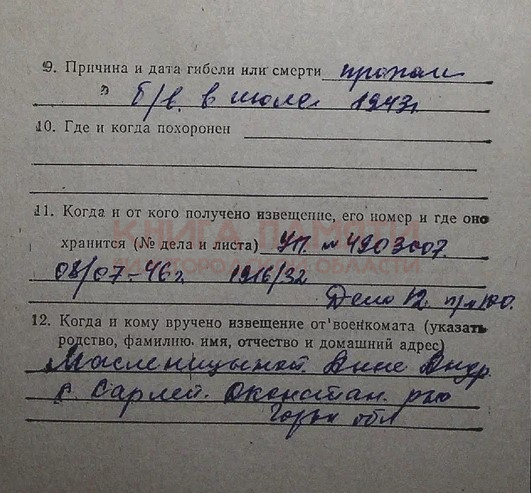 9. Причина и дата гибели или смерти пропал
б/в. в июле 1943г
10. Где и когда похоронен
11. Когда и от кого получено извещение, его номер и где оно
КНИГА ПАМЯТИ
хранится (№ дела и листа) УП. № 4903007.
НИЖЕГОРОДСКОЙ ОБЛАСТИ
08/07-46г 1916/32
Дело 12.
12. Когда и кому вручено извещение от военкомата (указать
родство, фамилию, имя, отчество и домашний адрес)
Масленицыной Анне Андр.
с. Сарлей. Дконстан. р-но
Горьк обл